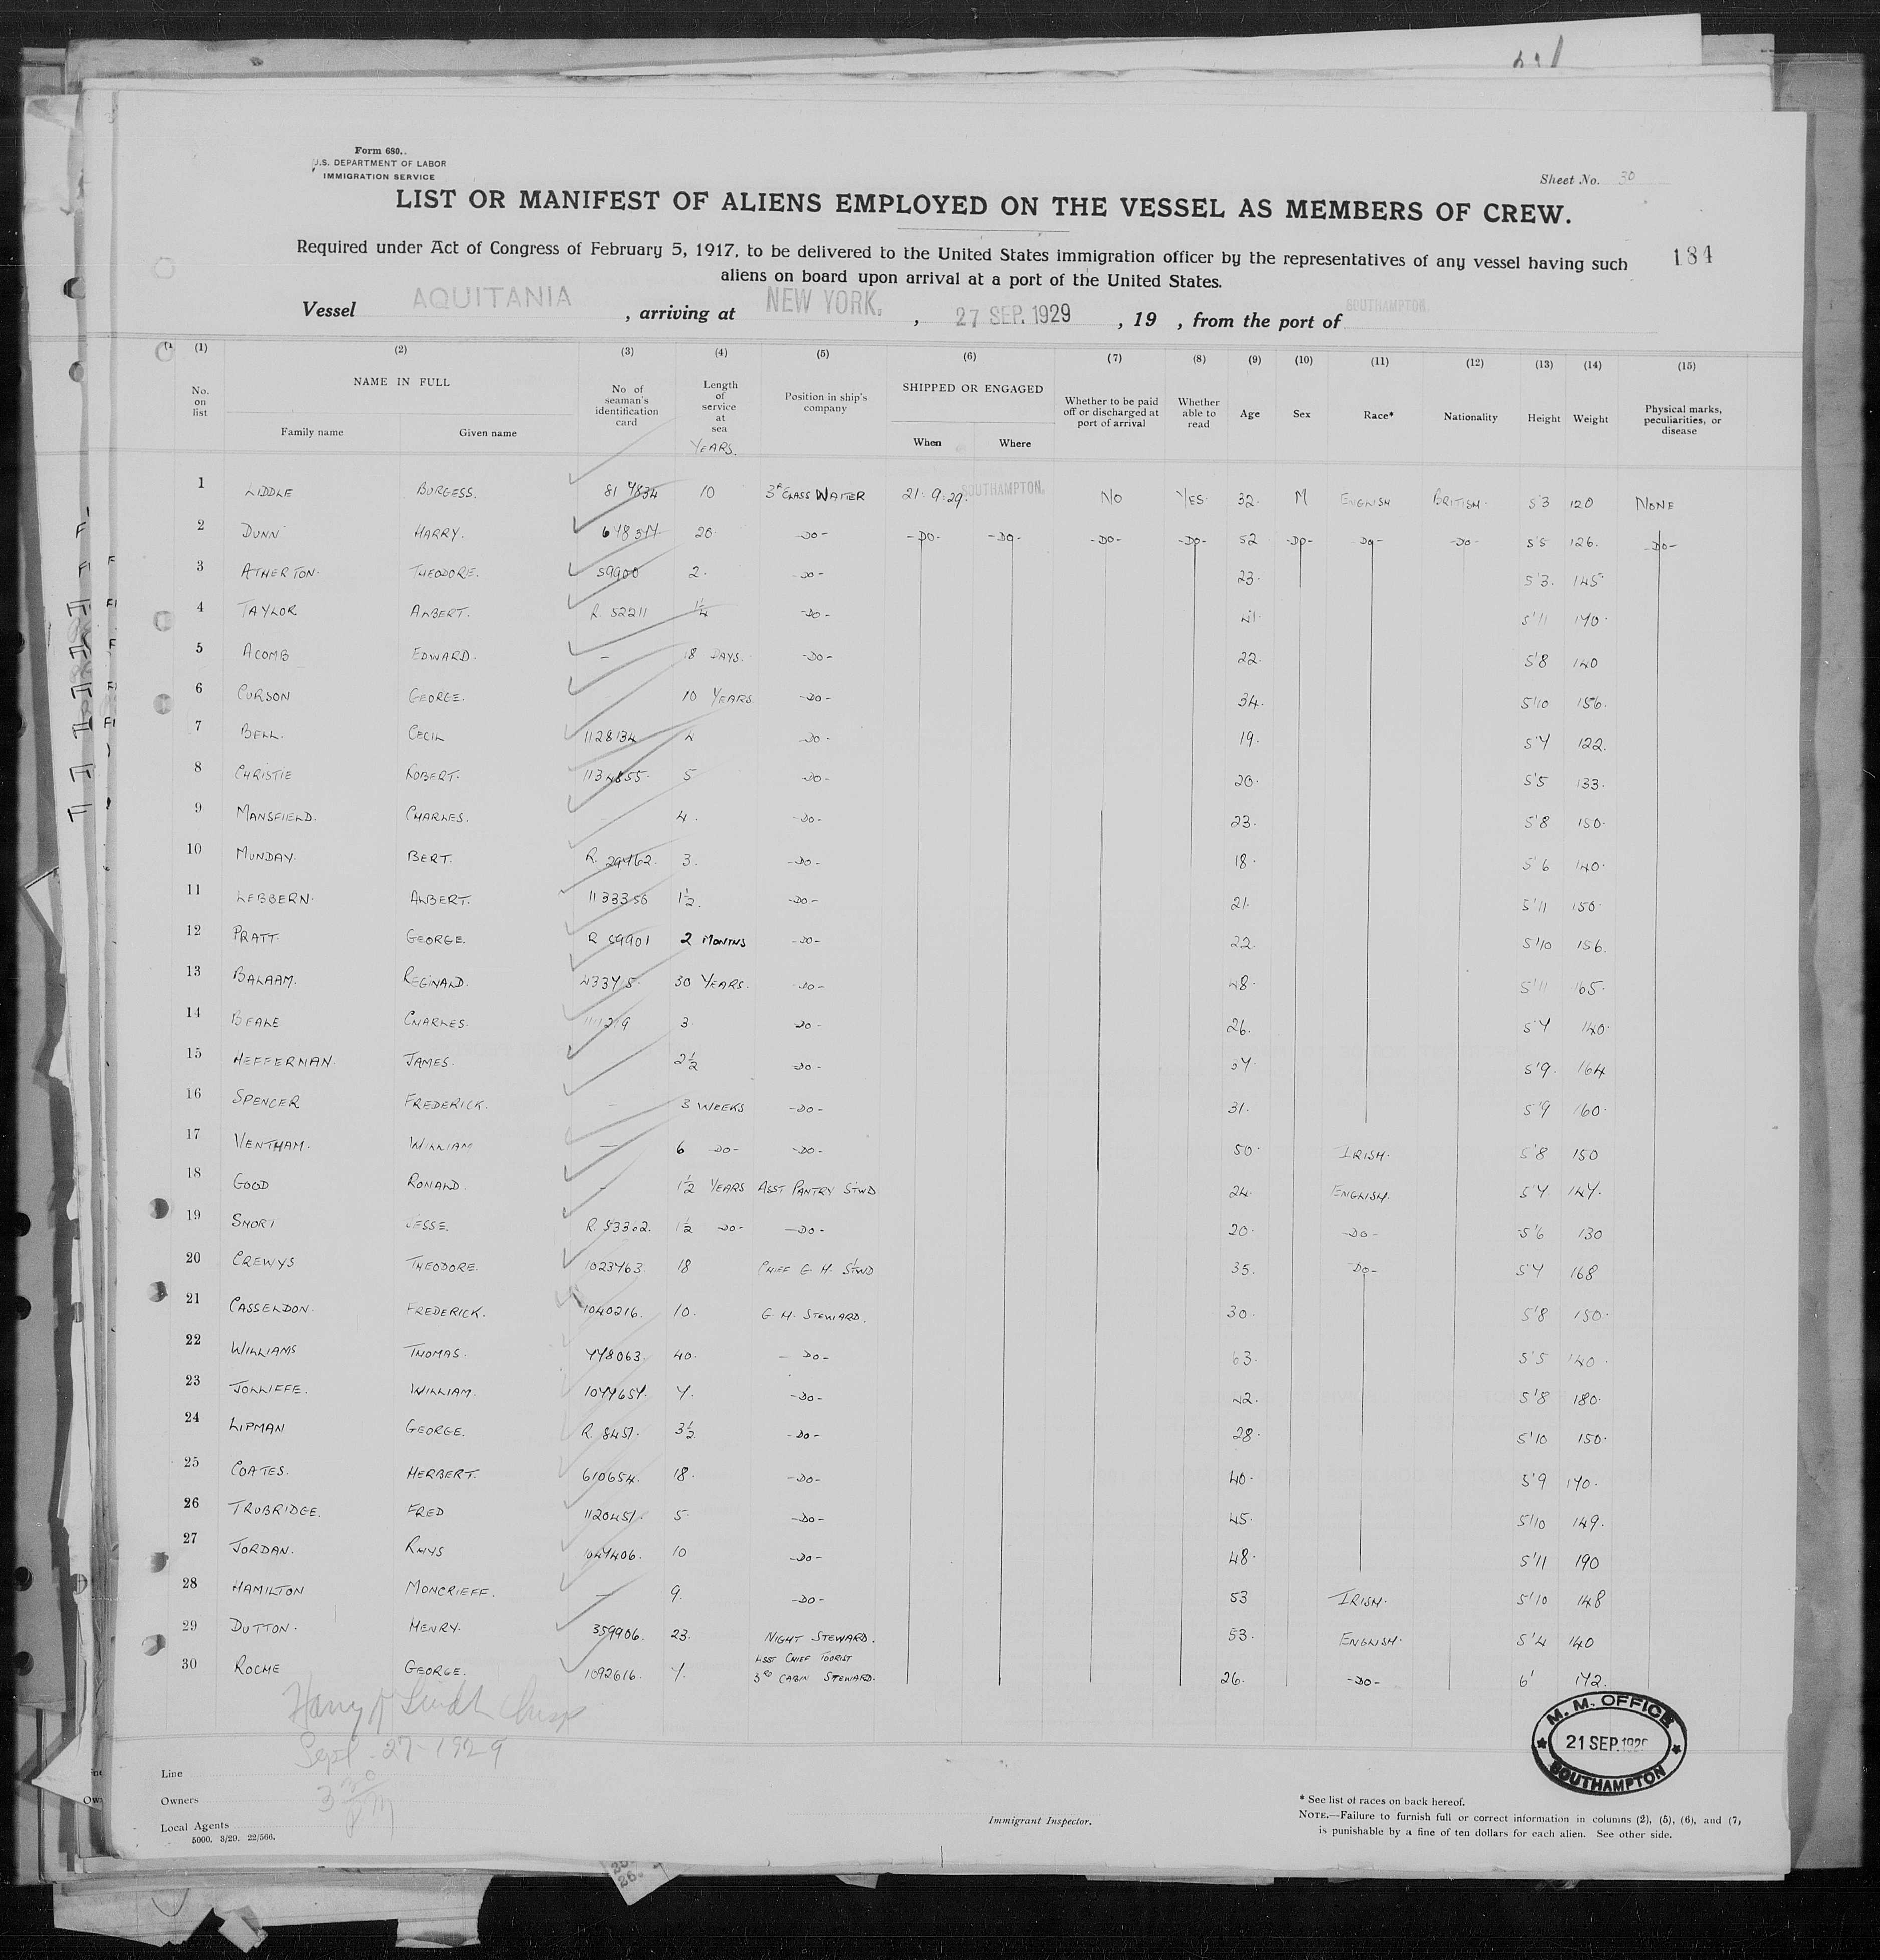 Form 680..
U.S. DEPARTMENT OF LABOR
IMMIGRATION SERVICE
Sheet No. 30
LIST OR MANIFEST OF ALIENS EMPLOYED ON THE VESSEL AS MEMBERS OF CREW.
184
Required under Act of Congress of February 5, 1917, to be delivered to the United States immigration officer by the representatives of any vessel having such
aliens on board upon arrival at a port of the United States.
Vessel AQUITANIA, arriving at NEW YORK., 27 SEP. 1929, 19 , from the port of SOUTHAMPTON.
(1) (2) (3) (4) (5) (6) (7) (8) (9) (10) (11) (12) (13) (14) (15)
No. on list NAME IN FULL Family name Given name No of seaman's identification card Length of service at sea YEARS. Position in ship's company SHIPPED OR ENGAGED When Where Whether to be paid off or discharged at port of arrival Whether able to read Age Sex Race* Nationality Height Weight Physical marks, peculiarities, or disease
1 LIDDLE BURGESS. 10 3R CLASS WAITER 21.9.29. SOUTHAMPTON. NO YES. 32. M ENGLISH BRITISH. 5'3 120 NONE
2 DUNN HARRY. 20. -DO- -DO- -DO- -DO- -DO- 52 -DO- -DO- -DO- 5'5 126. -DO-
3 ATHERTON. THEODORE. 59900 2. -DO- 23. 5'3. 145.
4 TAYLOR ALBERT. R. 52211 1/4 -DO- 41. 5'11 170.
5 ACOMB EDWARD. - 18 DAYS. -DO- 22. 5'8 140
6 CURSON GEORGE. 10 YEARS -DO- 34. 5'10 156.
7 BELL. CECIL 1128134 4 -DO- 19. 5'7 122.
8 CHRISTIE ROBERT. 1134855. 5 -DO- 20. 5'5 133.
9 MANSFIELD. CHARLES. 4. -DO- 23. 5'8 150.
10 MUNDAY. BERT. R. 29762. 3. -DO- 18. 5'6 140.
11 LEBBERN. ALBERT. 1133356 1½. -DO- 21. 5'11 150.
12 PRATT. GEORGE. R 59901 2 MONTHS -DO- 22. 5'10 156.
13 BALAAM. REGINALD. 43375. 30 YEARS. -DO- 48. 5'11 165.
14 BEALE CHARLES. 3. DO- 26. 5'7 140.
15 HEFFERNAN. JAMES. 2½ DO- 5'9. 164
16 SPENCER FREDERICK. - 3 WEEKS -DO- 31. 5'9 160.
17 VENTHAM. WILLIAM - 6 DO- -DO- 50. IRISH. 5'8 150
18 GOOD RONALD. - 1½ YEARS ASST PANTRY STWD 24. ENGLISH. 5'7 147.
19 SHORT JESSE. R. 53302. 1½ DO- -DO- 20. -DO- 5'6 130
20 CREWYS THEODORE. 1023763. 18 CHIEF G. H. STWD 35. -DO- 5'7 168
21 CASSELDON. FREDERICK. 1040216. 10. G. H. STEWARD. 30. 5'8 150.
22 WILLIAMS THOMAS. 778063. 40. - DO- 63. 5'5 140.
23 JOLLIFFE. WILLIAM. 1077657. 7. -DO- 42. 5'8 180.
24 LIPMAN GEORGE. R. 8457. 3½ -DO- 28. 5'10 150.
25 COATES. HERBERT. 610654. 18. -DO- 40. 5'9 170.
26 TRUBRIDGE. FRED 1120457. 5. -DO- 45. 5'10 149.
27 JORDAN. RHYS 1047406. 10 -DO- 48. 5'11 190
28 HAMILTON MONCRIEFF. - 9. -DO- 53 IRISH. 5'10 148
29 DUTTON. HENRY. 359906. 23. NIGHT STEWARD. 53. ENGLISH. 5'4 140
30 ROCHE GEORGE. 1092616. 7. ASST CHIEF TOURIST 3RD CABIN STEWARD. 26. -DO- 6' 172.
Sept - 27 - 1929
M. M. OFFICE
21 SEP. 1929
SOUTHAMPTON
Line
Owners
Local Agents
5000. 3/29. 22/566.
Immigrant Inspector.
* See list of races on back hereof.
NOTE.—Failure to furnish full or correct information in columns (2), (5), (6), and (7,
is punishable by a fine of ten dollars for each alien. See other side.